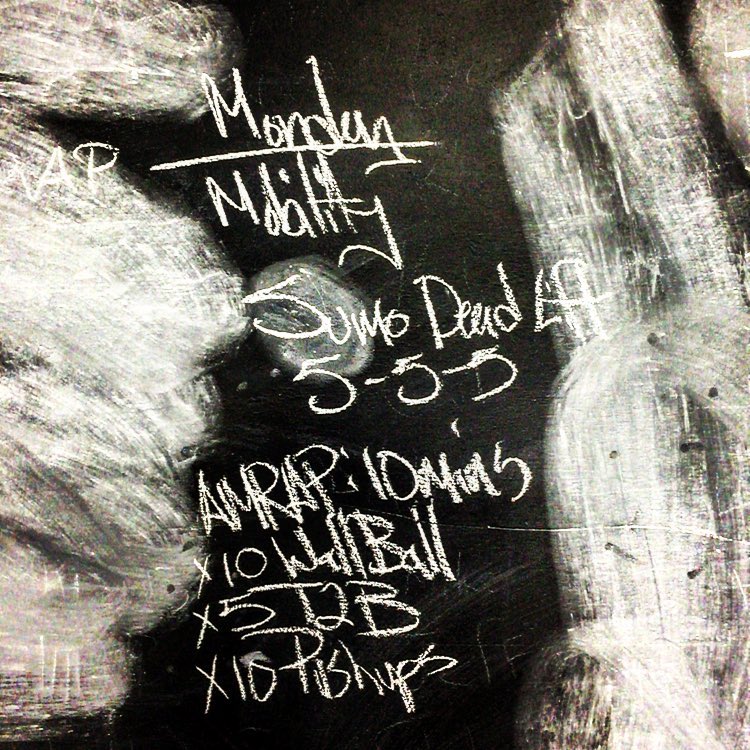 Monday
Mobility
Sumo Dead Lift
5-5-5
AMRAP: 10 mins
x10 Wall Ball
x5 T2B
x10 Pushups